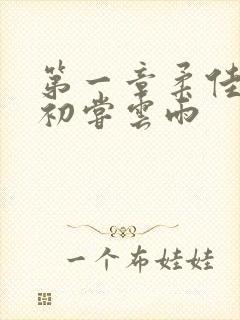 第一章柔佳
初嘗雲雨
一个布娃娃